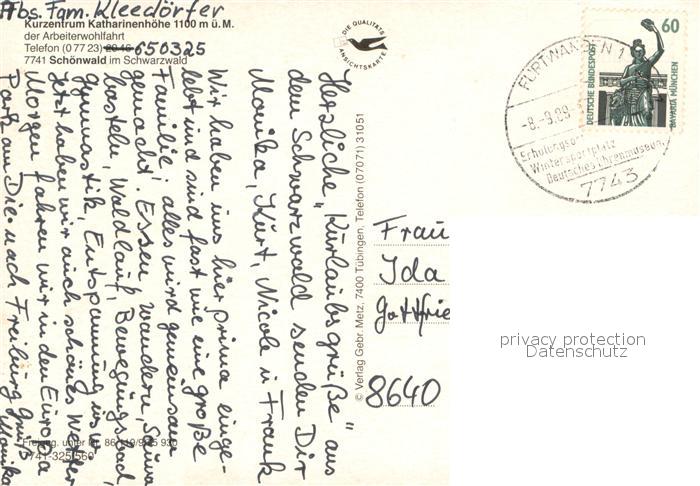 Abs. Fam. Kleedörfer
Kurzentrum Katharinenhöhe 1100 m ü.M.
der Arbeiterwohlfahrt
Telefon (0 77 23) 20 46 650325
7741 Schönwald im Schwarzwald
DIE QUALITÄTS
ANSICHTSKARTE
Herzliche "Kurlaubsgrüße" aus
dem Schwarzwald senden Dir
Monika, Kurt, Nicole u Frank
Wir haben uns hier prima einge-
lebt und sind fast wie eine große
Familie; alles wird gemeinsam
gemacht. Essen, Wandern, Sauna,
basteln, Waldlauf, Bewegungsbad,
Gymnastik, Entspannung usw
Jetzt haben wir auch schönes Wetter
Morgen fahren wir in den Europa
Park am Die nach Freiburg Gruß
Monika
Freigeg. unter Nr.
7741-325/560
© Verlag Gebr. Metz, 7400 Tübingen, Telefon (07071) 31051
60
DEUTSCHE BUNDESPOST
BAVARIA MÜNCHEN
FURTWANGEN 1
-8.-9.89
Erholungsort
Wintersportplatz
Deutsches Uhrenmuseum
7743
Frau
Ida
Gottfrie
8640
privacy protection
Datenschutz